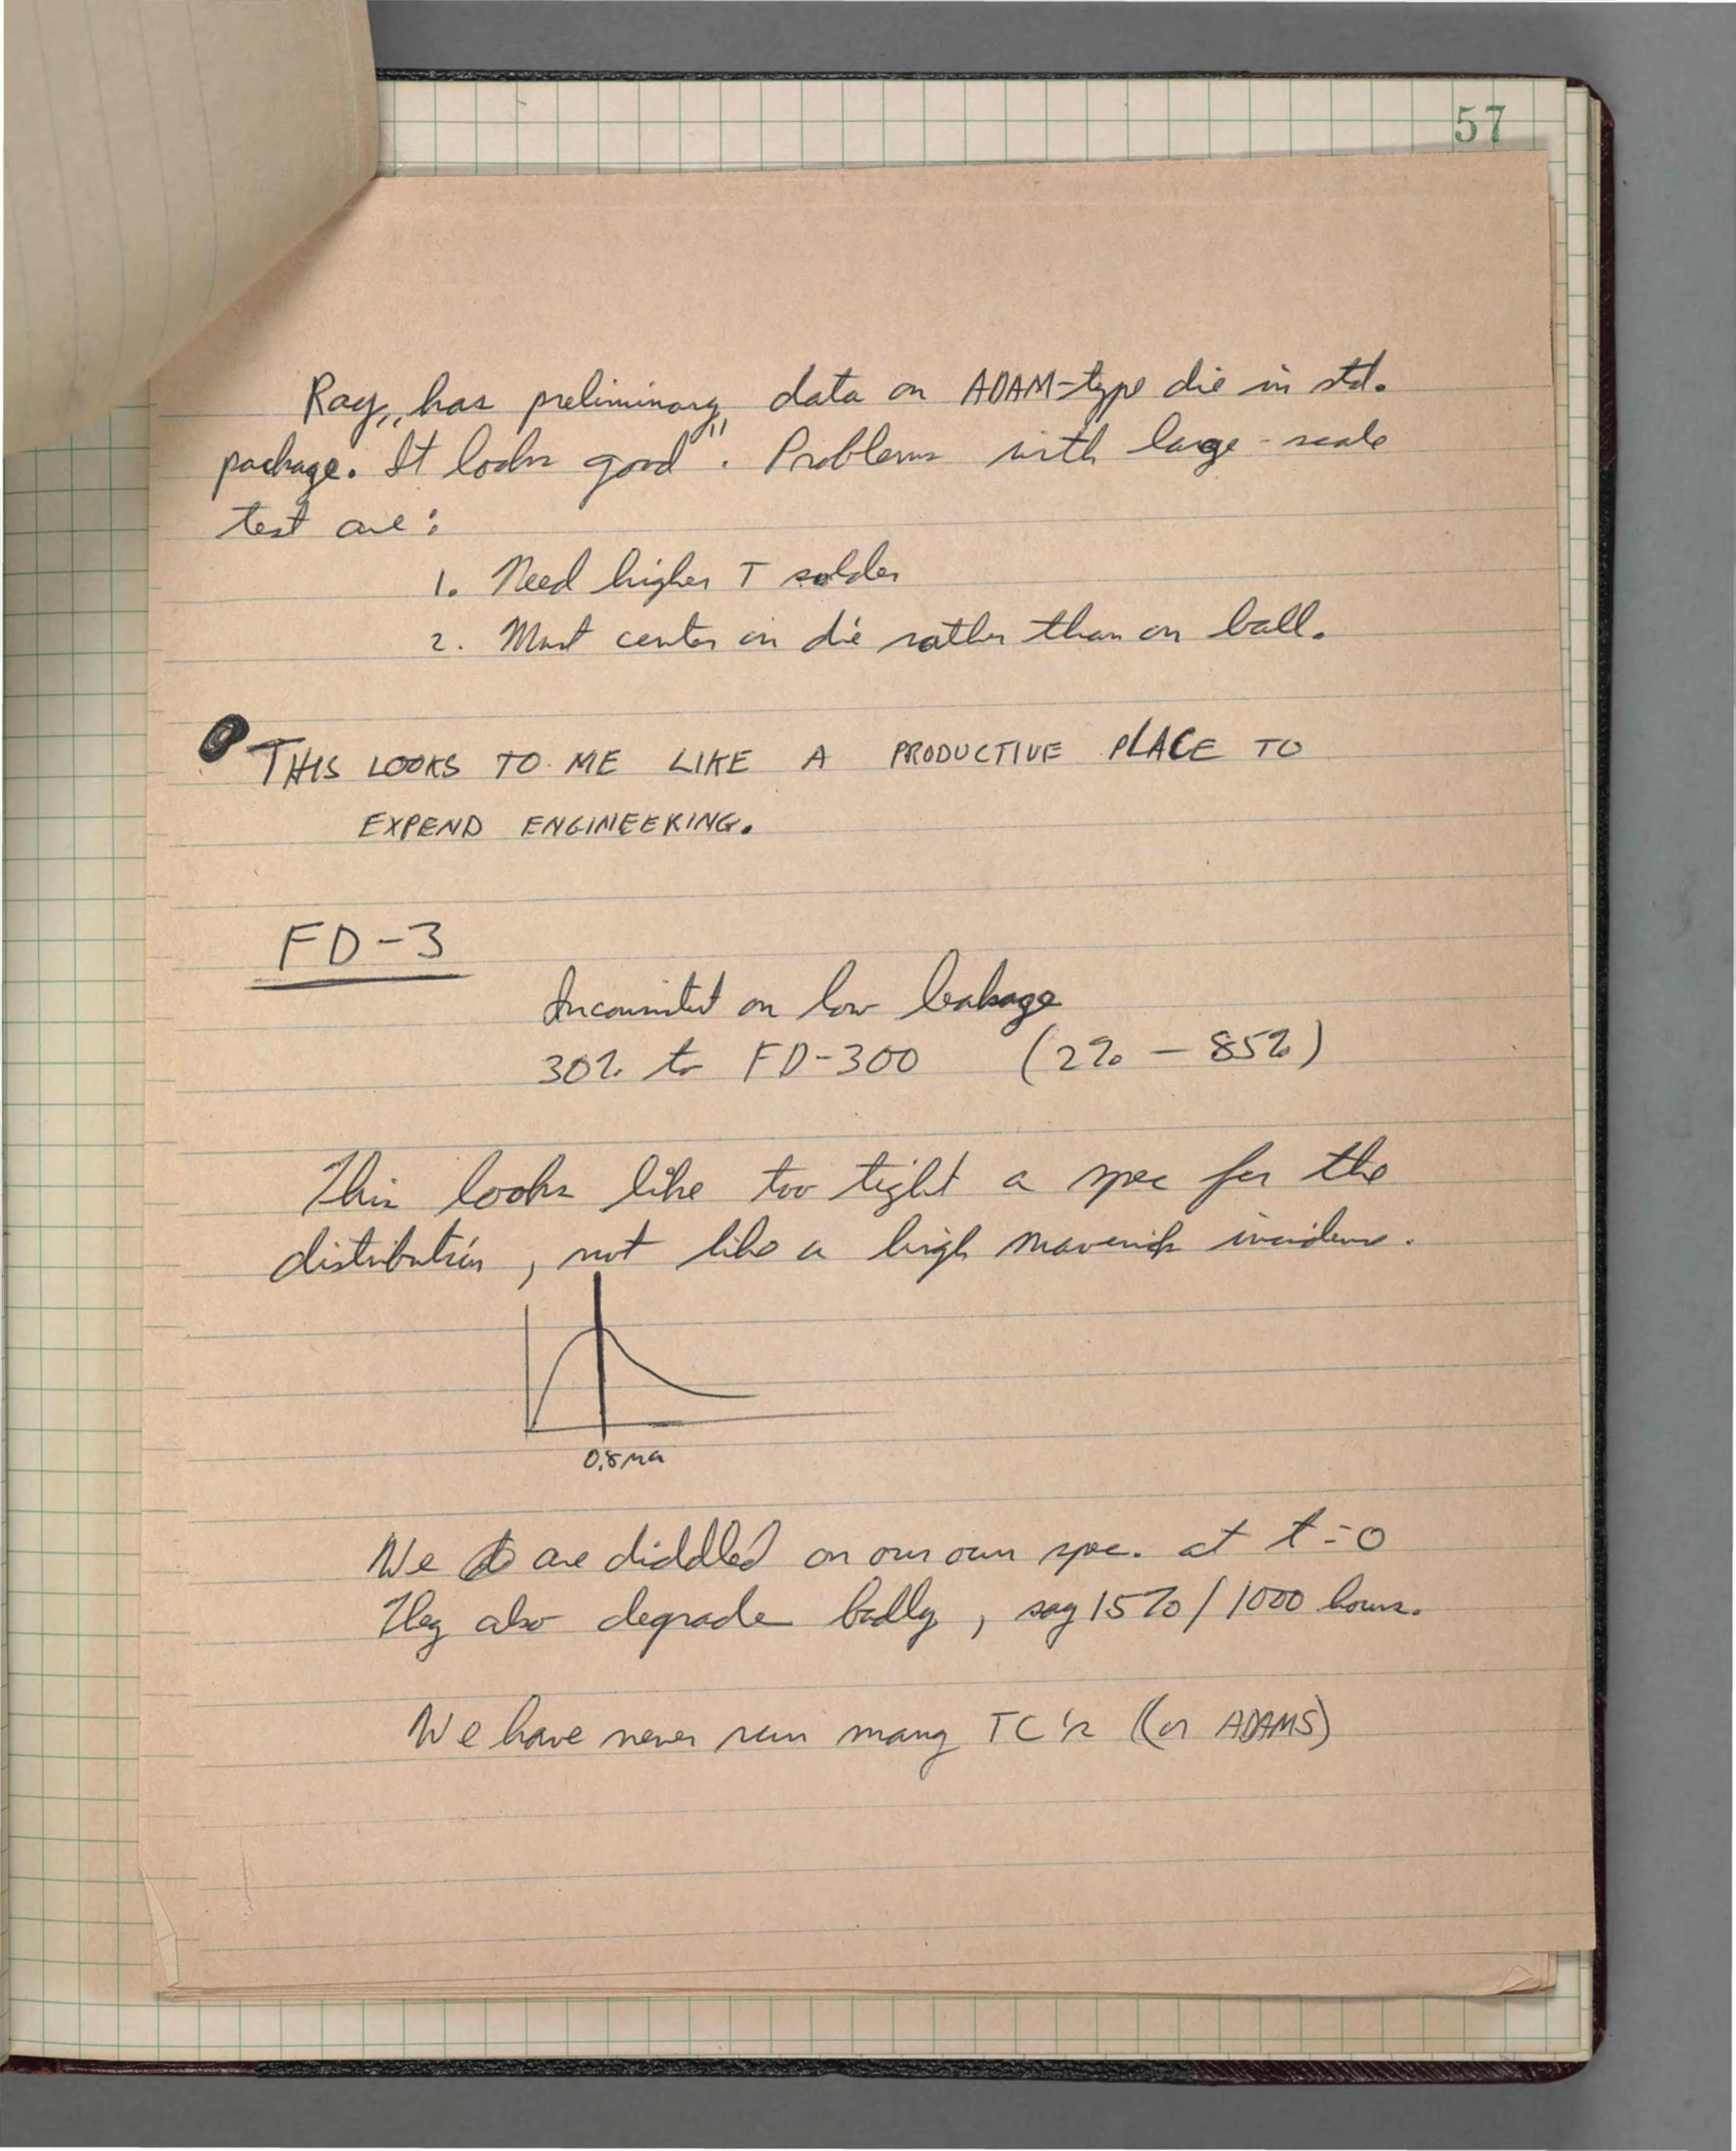 57
Ray has preliminary data on ADAM-type die in std.
package. "It looks good". Problems with large-scale
test are:
1. Need higher T solder
2. Must center on die rather than on ball.
THIS LOOKS TO ME LIKE A PRODUCTIVE PLACE TO
EXPEND ENGINEERING.
FD-3
Inconsistent on low leakage
30% to FD-300 (2% - 85%)
This looks like too tight a spec for the
distribution, not like a high maverick incidence.
0.8 ma
We are diddled on our own spec. at t=0
They also degrade badly, say 15%/1000 hours.
We have never run many TC's (or ADAMS)